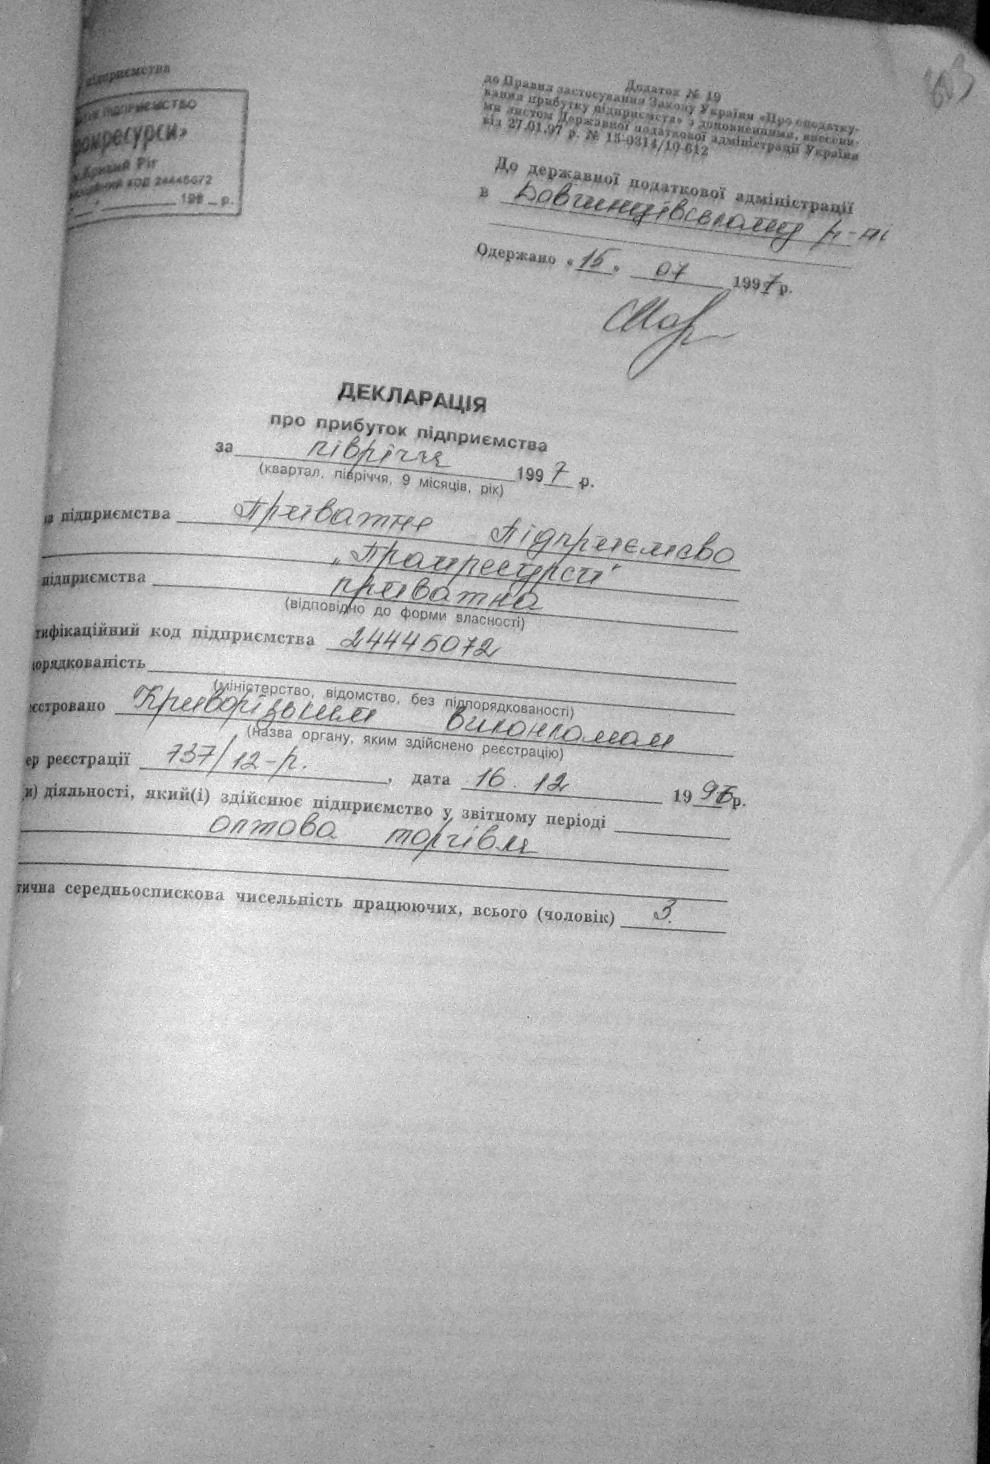 підприємства
ПІДПРИЄМСТВО
м.Кривий Ріг
КОД 24445072
199 _ р.
603
Додаток № 19
до Правил застосування Закону України «Про оподатку-
вання прибутку підприємств» з доповненнями, внесени-
ми листом Державної податкової адміністрації України
від 27.01.97 р. № 15-0314/10-612
До державної податкової адміністрації
в Довгинцівському р-ні
Одержано «15» 07 1997 р.
ДЕКЛАРАЦІЯ
про прибуток підприємства
за півріччя 1997 р.
(квартал, півріччя, 9 місяців, рік)
підприємства Приватне Підприємсво
"Промресурси"
підприємства приватна
(відповідно до форми власності)
тифікаційний код підприємства 24445072
порядкованість
(міністерство, відомство, без підпорядкованості)
єстровано Криворізьким виконкомом
(назва органу, яким здійснено реєстрацію)
ер реєстрації 737/12-р. , дата 16.12 1996 р.
и) діяльності, який(і) здійснює підприємство у звітному періоді
оптова торгівля
тична середньоспискова чисельність працюючих, всього (чоловік) 3.